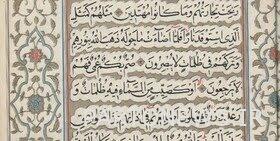 رَبِحَتْ تِجَارَتُهُمْ وَمَا كَانُوا مُهْتَدِينَ مَثَلُهُمْ كَمَثَلِ
الَّذِي اسْتَوْقَدَ نَارًا فَلَمَّا أَضَاءَتْ مَا حَوْلَهُ ذَهَبَ اللَّهُ بِنُورِهِمْ
وَتَرَكَهُمْ فِي ظُلُمَاتٍ لَا يُبْصِرُونَ صُمٌّ بُكْمٌ عُمْيٌ فَهُمْ
لَا يَرْجِعُونَ أَوْ كَصَيِّبٍ مِنَ السَّمَاءِ فِيهِ ظُلُمَاتٌ وَ
رَعْدٌ وَبَرْقٌ يَجْعَلُونَ